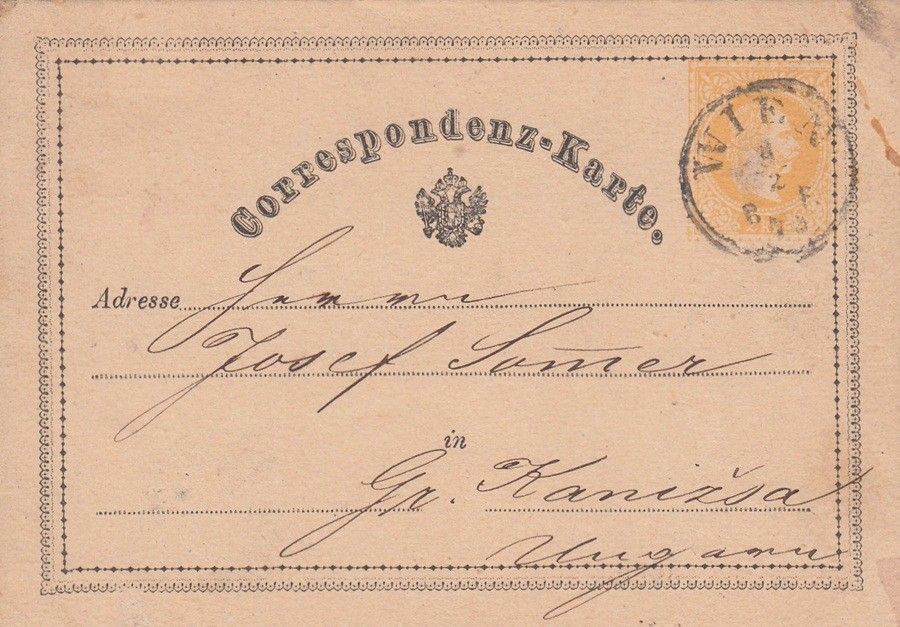 Correspondenz-Karte.
WIEN
4
2
Adresse Herrn
Josef Som̅er
in
Gr. Kanižsa
Ungarn